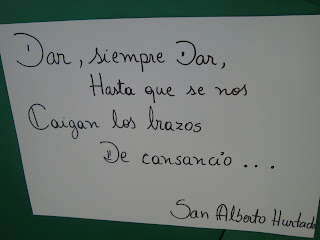 Dar, siempre Dar,
Hasta que se nos
Caigan los brazos
De cansancio ...
San Alberto Hurtado